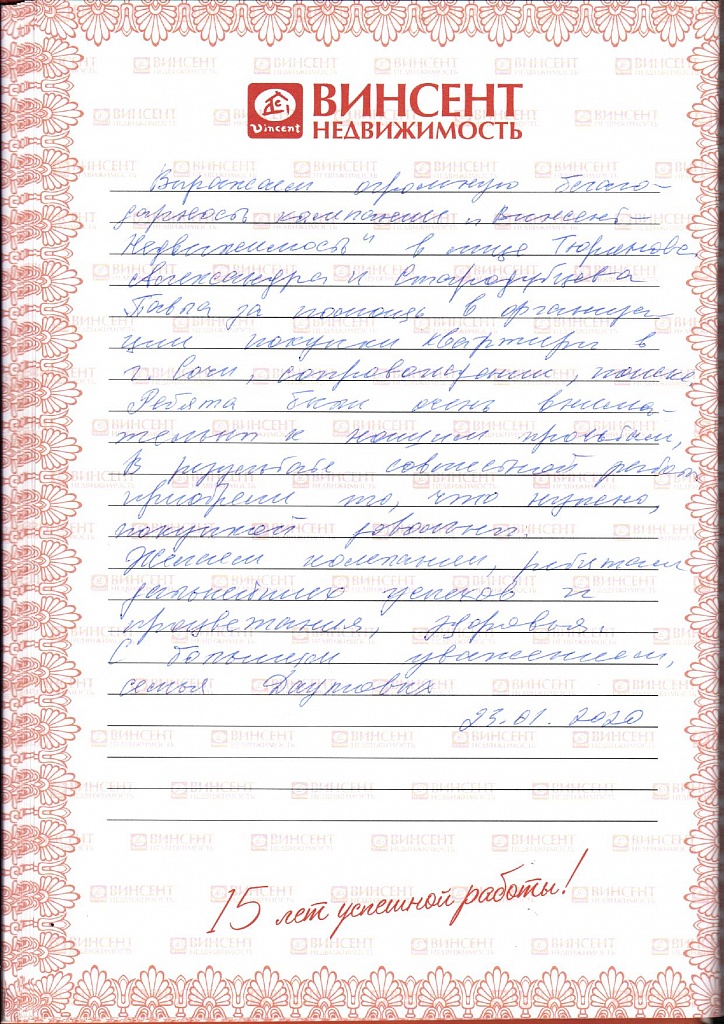 Vincent
ВИНСЕНТ
НЕДВИЖИМОСТЬ
Выражаем огромную благо-
дарность компании „Винсент-
Недвижимость" в лице
Александра и Стародубцева
Павла за помощь в организа-
ции покупки квартиры в
г. Сочи, сопровождении, поиске
Ребята были очень внима-
тельны к нашим просьбам,
В результате совместной работы
приобрели то, что нужно,
покупкой довольны.
Желаем компании, ребятам
дальнейших успехов и
процветания, здоровья.
С большим уважением,
семья Даутовых
23.01.2020
15 лет успешной работы!